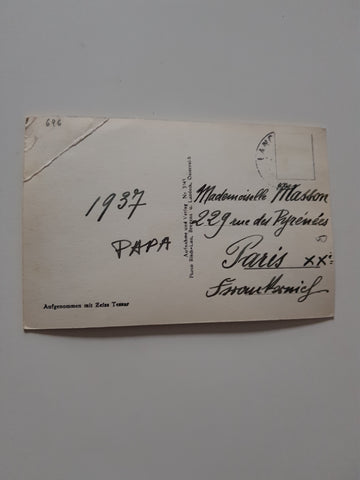 696
1937
PAPA
Aufgenommen mit Zeiss Tessar
Aufnahme und Verlag
Bregenz u. Landeck, Österreich
Mademoiselle Masson
229 rue des Pyrénées
Paris XXe
Frankreich